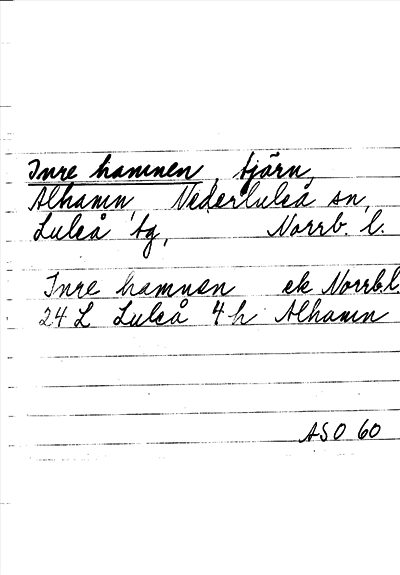 Inre hamnen, tjärn,
Alhamn, Nederluleå sn,
Luleå tg, Norrb. l.
Inre hamnen ek Norrb.l.
24 L Luleå 4h Alhamn
ASO 60